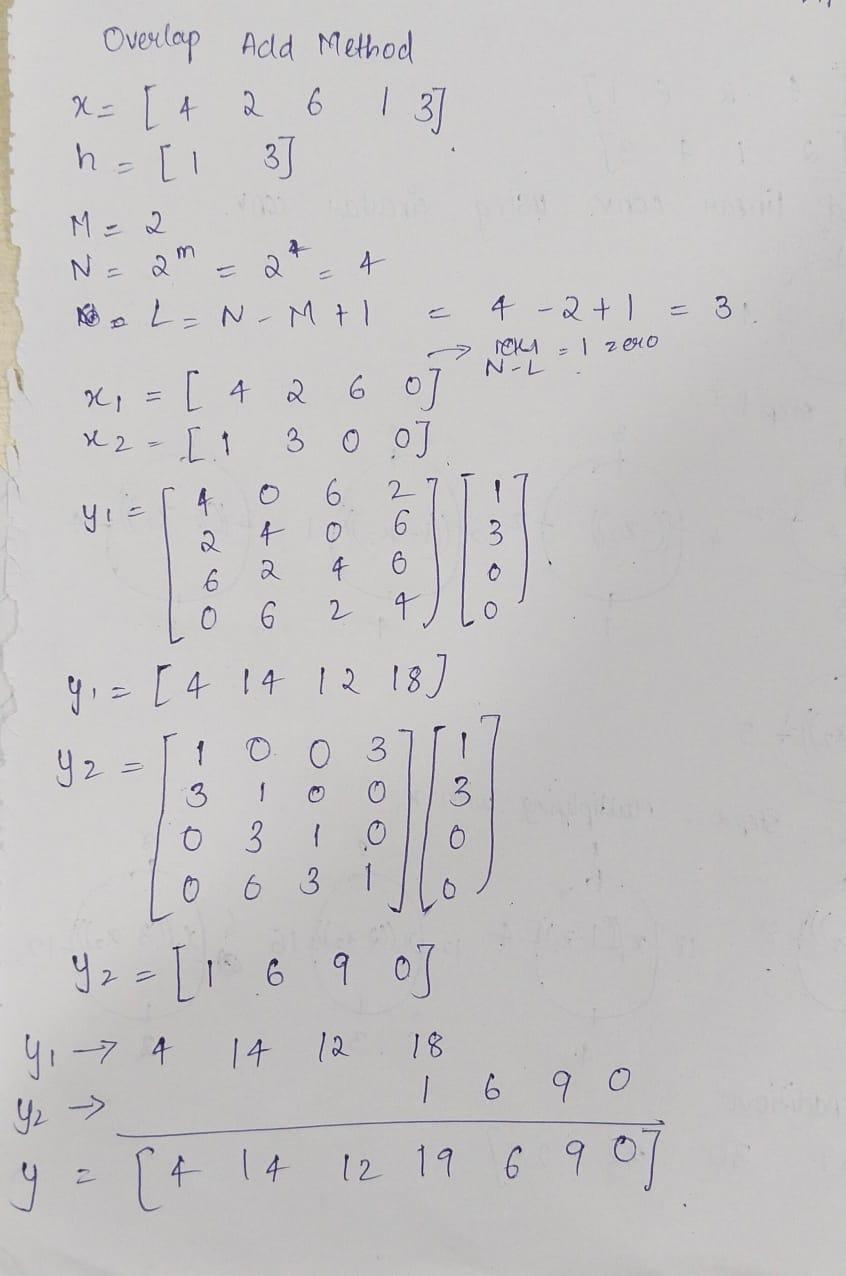 Overlap Add Method
x = [ 4 2 6 1 3]
h = [1 3]
M = 2
N = 2^m = 2 = 4
L = N - M + 1 = 4 - 2 + 1 = 3
→ = 1 zero
N-L
x1 = [ 4 2 6 0]
x2 = [ 1 3 0 0]
y1 = [ 4 0 6 2 ] [ 1 ]
2 4 0 6 3
6 2 4 6 0
0 6 2 4 0
y1 = [ 4 14 12 18]
y2 = [ 1 0 0 3 ] [ 1 ]
3 1 0 0 3
0 3 1 0 0
0 6 3 1 0
y2 = [ 1 6 9 0]
y1 → 4 14 12 18
y2 → 1 6 9 0
y = [ 4 14 12 19 6 9 0]